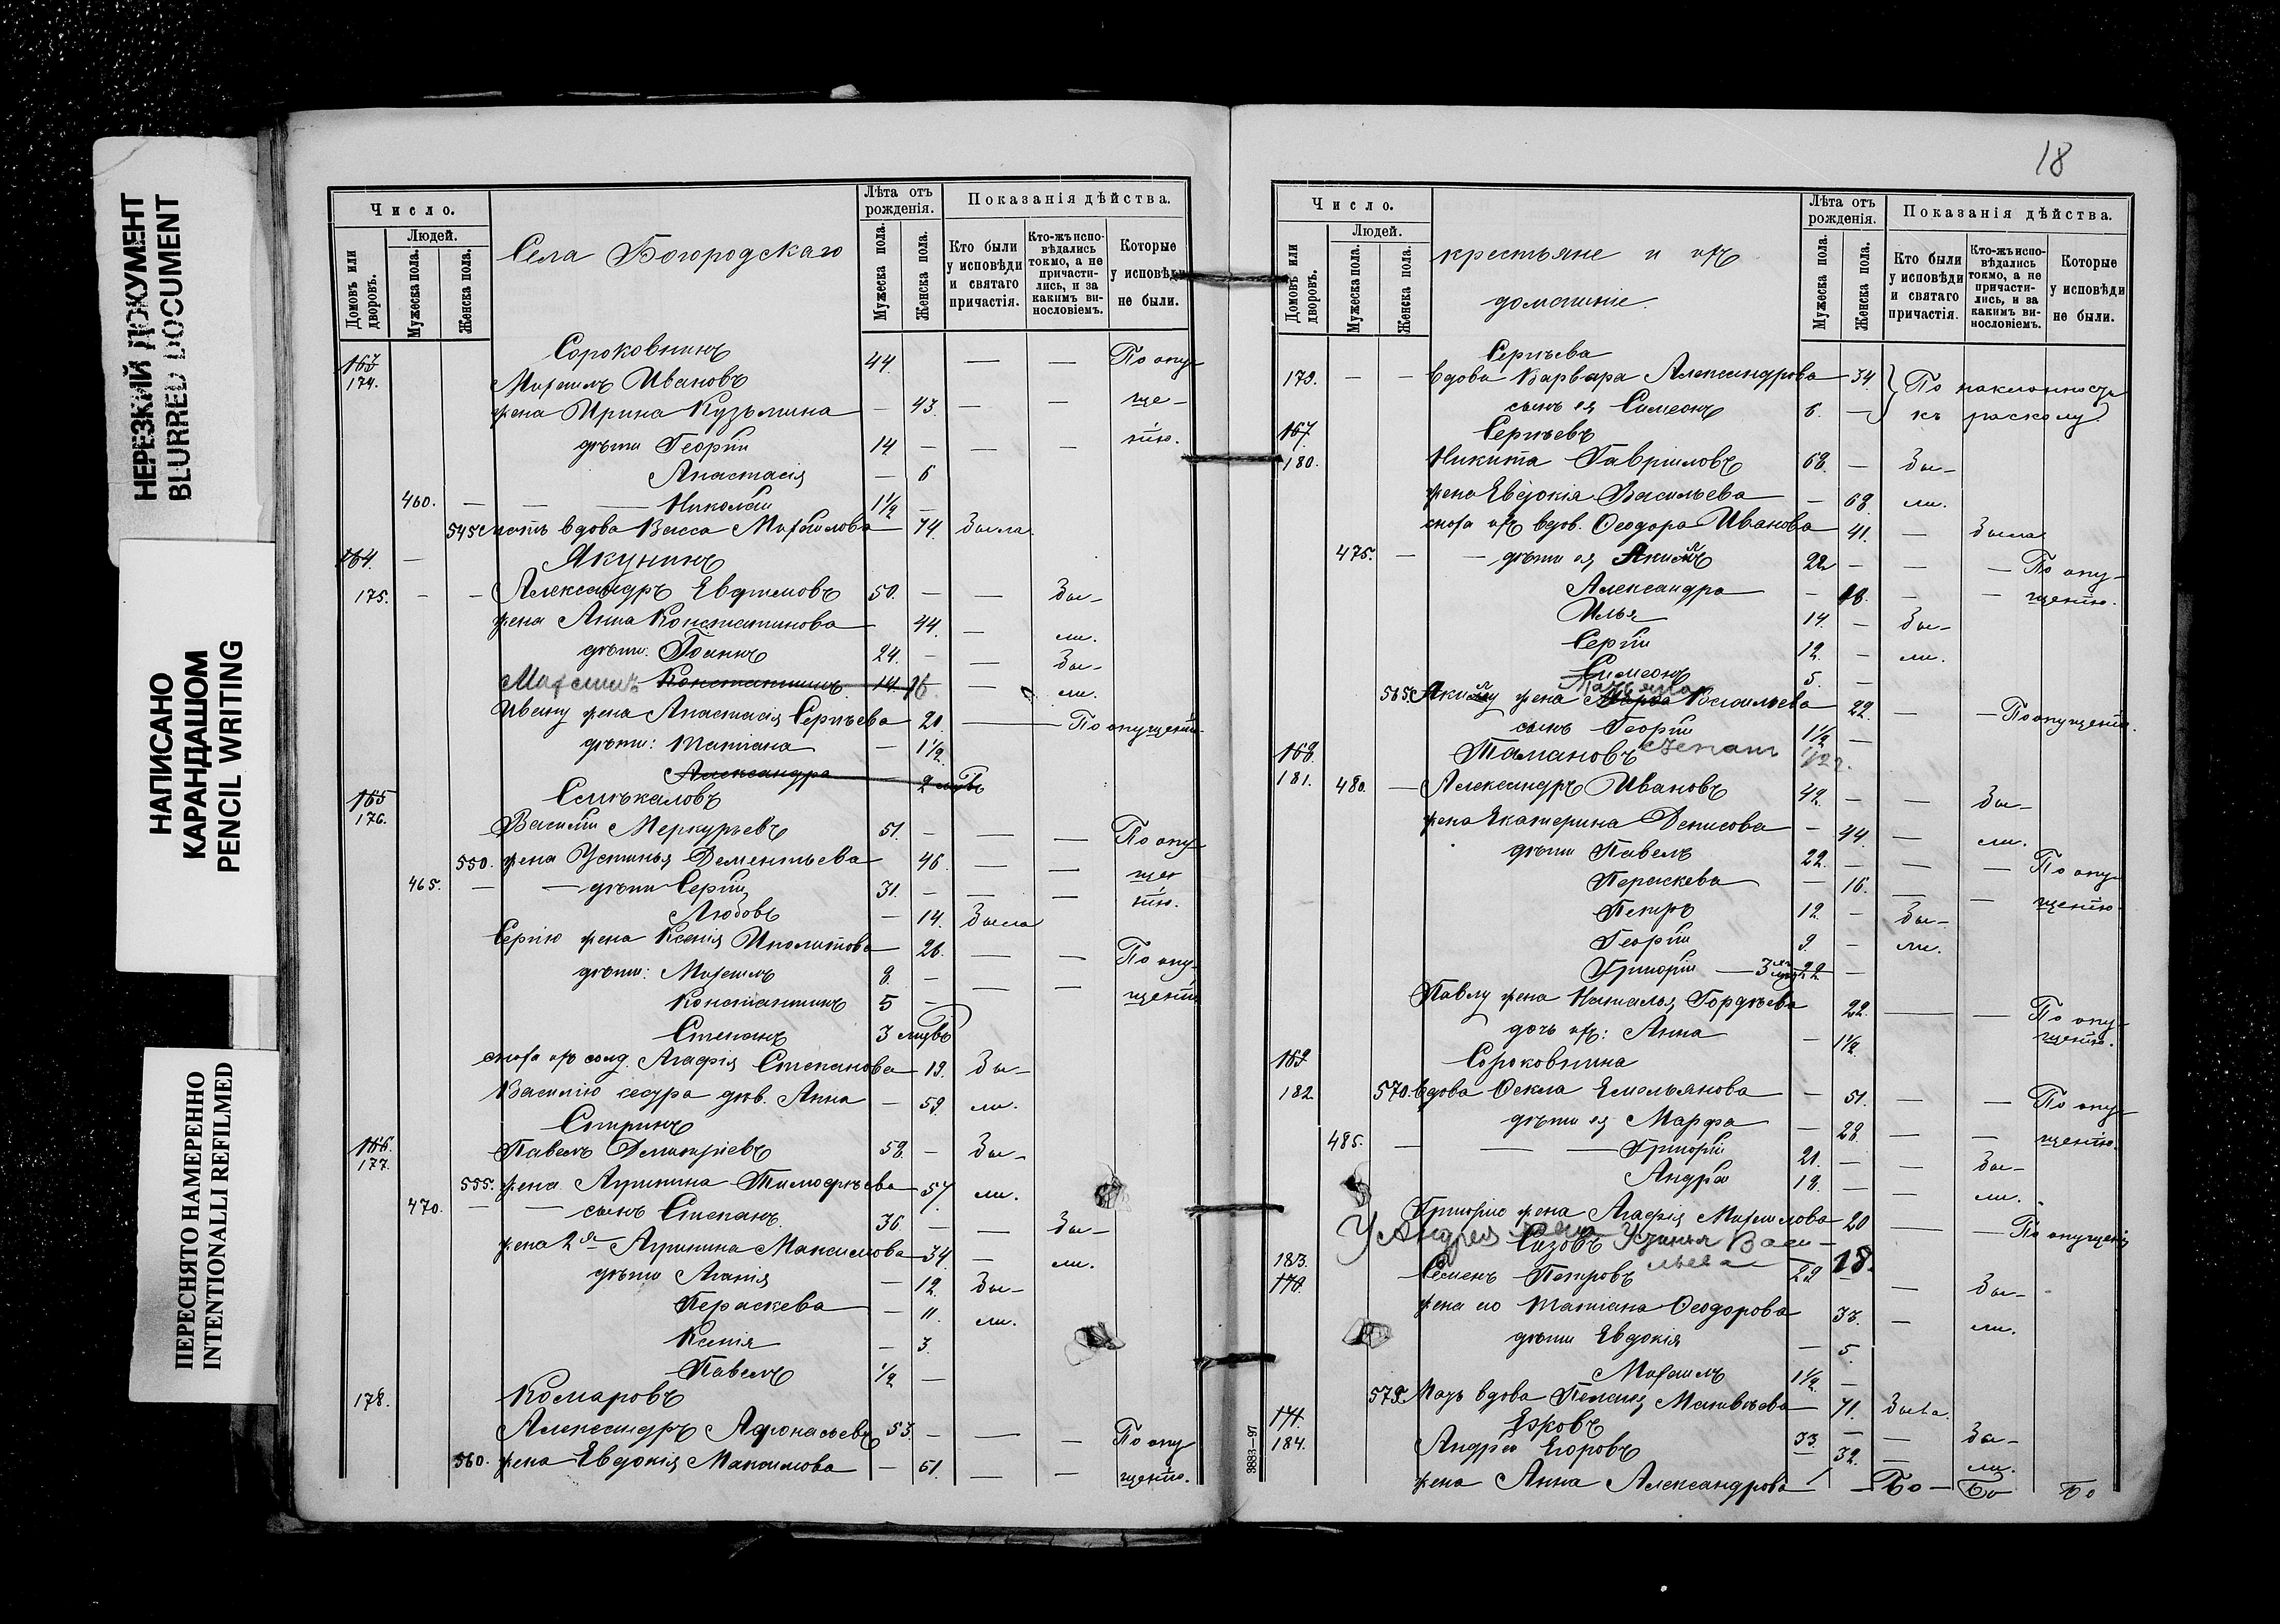 НЕРЕЗКИЙ ДОКУМЕНТ
BLURRED DOCUMENT
НАПИСАНО
КАРАНДАШОМ
PENCIL WRITING
ПЕРЕСНЯТО НАМЕРЕННО
INTENTIONALLI REFILMED
Число.
Людей.
Домовъ или дворовъ.
Мужеска пола.
Женска пола.
Села Богородскаго
Лѣта отъ рожденія.
Мужеска пола.
Женска пола.
Показанія дѣйства.
Кто были у исповѣди и святаго причастія.
Кто-жъ исповѣдались токмо, а не причастились, и за какимъ винословіемъ.
Которые у исповѣди не были.
163 Сороковнинъ
174. Михаилъ Ивановъ 44. — — По опу-
жена Ирина Кузьмина — 43. — — ще-
дѣти Георгій 14 — — — нію.
Анастасія — 6
460. — — Николай 1½ —
545 мать вдова Васса Михайлова 74. Была.
164. — Якунинъ
175. — — Александръ Евфимовъ 50. — — Бы-
жена Анна Константинова 44. — ли.
дѣти. Іоаннъ 24. — — Бы-
Максимъ Константинъ 14. 16 — ли.
Ивану жена Анастасія Сергѣева 21. — По опущенію
дѣти: Татіана — 1½
Александра 2
165
176. Василій Меркурьевъ 51. — — — По опу-
550. жена Устинья Дементьева 46 — — ще-
465. — — дѣти Сергій 31. — — — нію.
Любовь — 14. Была
Сергію жена Ксенія Иполитова 26. — — По опу-
дѣти: Михаилъ 8. — — —
Константинъ 5 — щенію
Степанъ 3
сноха их солд. Агафія Степанова 19. Бы-
Василію сестра дѣв. Анна — 59. ли.
166. Спиринъ
177. Павелъ Дмитріевъ 58. — Бы-
555. жена Агрипина Тимофѣева 57. ли.
470. — — сынъ Степанъ. 36. — — Бы-
жена 2я Агрипина Максимова 34. — ли.
дѣти Агапія — 12. Бы-
Пераскева — 11. ли.
Ксенія — 3.
Павелъ ½ —
178. Комаровъ
Александръ Афонасьевъ 53. — — — По опу-
560. жена Евдокія Максимова — 61. — — щенію.
18
Число.
Людей.
Домовъ или дворовъ.
Мужеска пола.
Женска пола.
крестьяне и ихъ
домашніе.
Лѣта отъ рожденія.
Мужеска пола.
Женска пола.
Показанія дѣйства.
Кто были у исповѣди и святаго причастія.
Кто-жъ исповѣдались токмо, а не причастились, и за какимъ винословіемъ.
Которые у исповѣди не были.
Сергѣева
179. — — вдова Варвара Александрова 34. По наклонности
сынъ ея Симеонъ 6. — къ расколу.
167. Сергѣевъ
180. Никита Гавриловъ 68. — Бы-
жена Евдокія Васильева — 68. ли.
сноха ихъ вдов. Ѳеодора Иванова 41. — Была
475. — — дѣти ея Акимъ 22 — — — По опу-
Александра — 18. — — щенію.
Илья 14. — Бы-
Сергій 12. — ли.
Симеонъ 5. —
565. Акиму жена Васильева 22. — — По опущенію.
сынъ Георгій 1½ —
168. Тамановъ
181. 480. — Александръ Ивановъ 42. — — Бы-
жена Екатерина Денисова — 44. — ли.
дѣти Павелъ 22. — — — По опу-
Пераскева — 16. — — щенію.
Петръ 12. — Бы-
Георгій 9 — ли.
Григорій
Павлу жена Наталья Гордѣева 22. — — По опу-
дочь ихъ: Анна — 1½ щенію.
169 Сороковнина
182. 570. вдова Ѳекла Емельянова — 51. — — По опу-
дѣти ея Марфа — 28. — — щенію.
485. — — — Григорій 21. — — Бы-
Андрей 18. — — ли.
Григорію жена Агафія Михайлова 20 — — По опущенію
У Андрея жена Устинья Васи-
льева — 18.
Сизовъ
183.
170. Семенъ Петровъ 29 — — Бы-
жена его Татіана Ѳеодорова 33. — ли.
дѣти Евдокія — 5.
Михаилъ 1½ —
575. Мать вдова Пелагія Матвѣева 71. Была.
171. Ежовъ
184. Андрей Егоровъ 33. — — Бы-
жена Анна Александрова 32. — ли.
— Бо — Бо Бо
3883—97